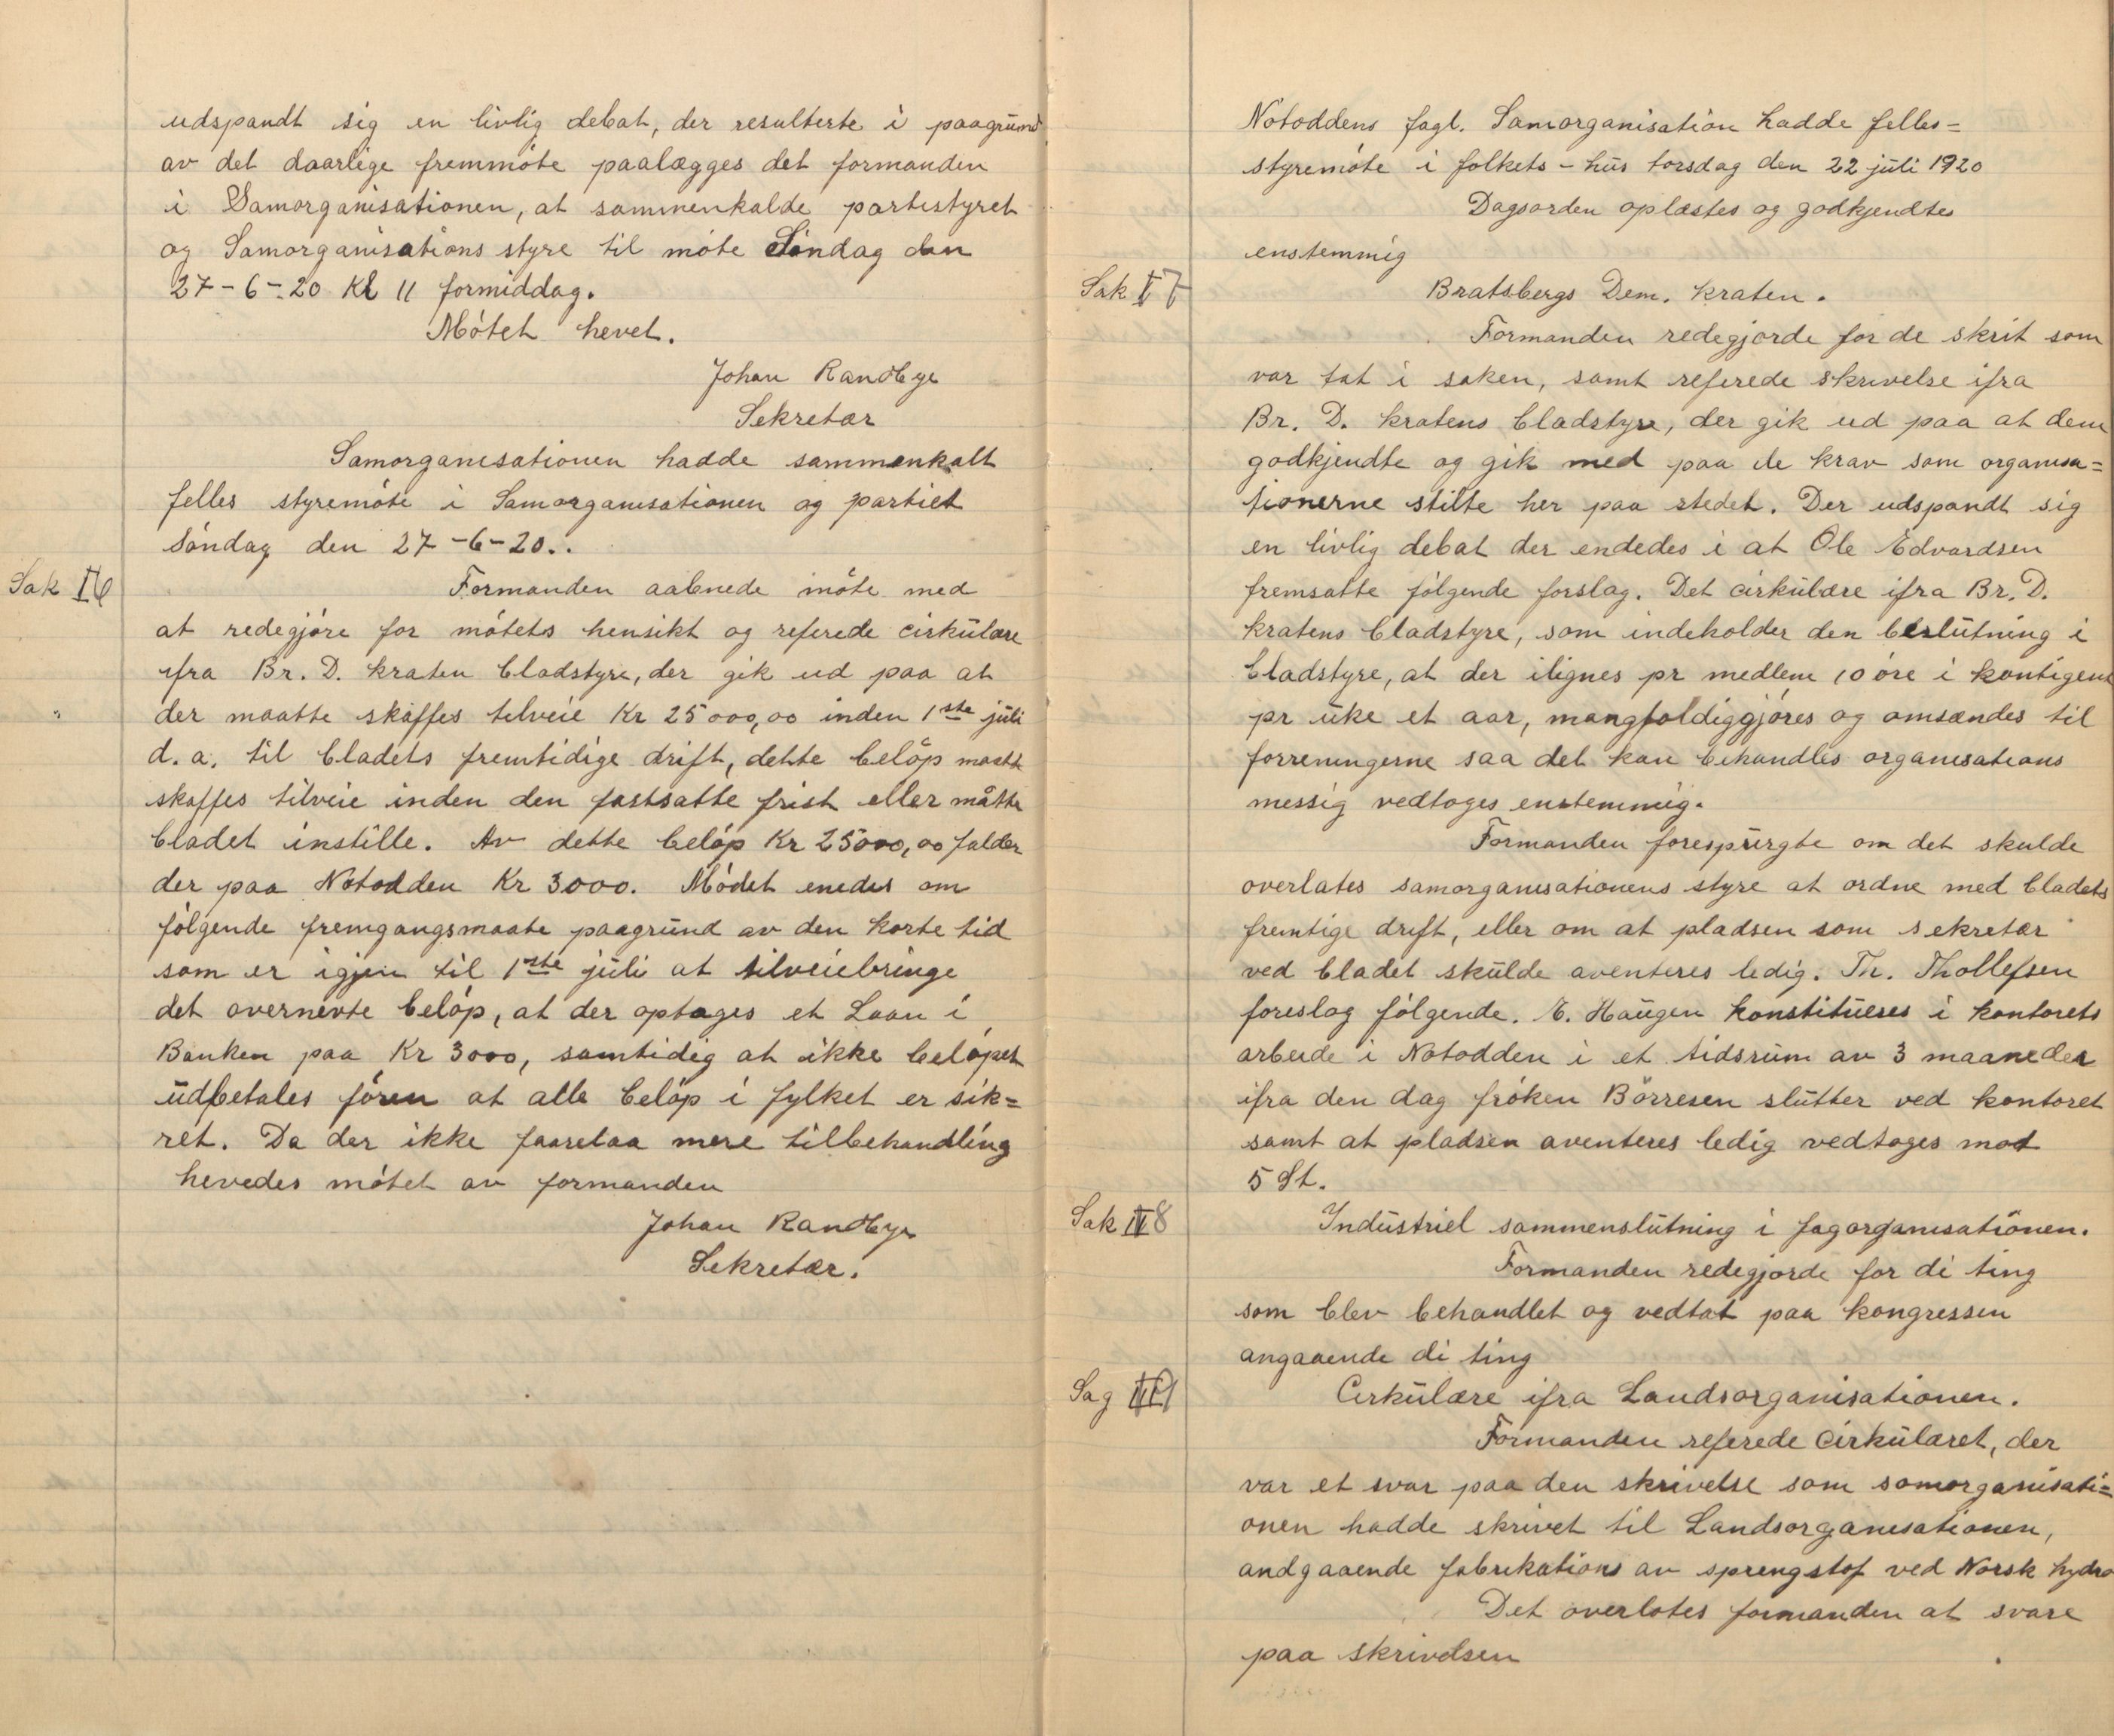 udspandt sig en livlig debat, der resulterte i paagrund
av det daarlige fremmöte paalægges det formanden
i Samorganisationen, at sammenkalde partistyret
og Samorganisations styre til möte Söndag den
27-6-20 Kl 11 formiddag.
Mötet hevet.
Johan Randbye
Sekretær
Samorganisationen hadde sammenkalt
felles styremöte i Samorganisationen og partiet
söndag den 27-6-20..
Sak 6
Formanden aabnede möte med
at redegjöre for mötets hensikt og referede cirkulære
ifra Br. D. kraten bladstyre, der gik ud paa at
der maatte skaffes tilveie Kr 25000,00 inden 1ste juli
d.a. til bladets fremtidige drift, dette belöp maatte
skaffes tilveie inden den fastsatte frist eller måtte
bladet instille. Av dette belöp Kr 25000,00 falder
der paa Notodden Kr 3000. Mödet enedes om
fölgende fremgangsmaate paagrund av den korte tid
som er igjen til 1ste juli at tilveiebringe
det overnevte belöp, at der optages et Laan i
Banken paa Kr 3000, samtidig at ikke belöpet
udbetales fören at alle belöp i fylket er sik=
ret. Da der ikke faarelaa mere tilbehandling
hevedes mötet av formanden
Johan Randbye
Sekretær.
Notoddens fagl. Samorganisation hadde felles=
styremöte i folkets-hus torsdag den 22 juli 1920
Dagsorden oplæstes og godkjendtes
enstemmig
Sak I 7
Bratsbergs Dem. kraten.
Formanden redegjorde for de skrit som
var tat i saken, samt referede skrivelse ifra
Br. D. kratens bladstyre, der gik ud paa at dem
godkjendte og gik med paa de krav som organisa=
tionerne stilte her paa stedet. Der udspandt sig
en livlig debat der endedes i at Ole Edvardsen
fremsatte fölgende forslag. Det cirkulære ifra Br. D.
kratens bladstyre, som indeholder den beslutning i
bladstyre, at der ilignes pr medlem 10 öre i kontigent
pr uke et aar, mangfoldiggjöres og omsændes til
forreningerne saa det kan behandles organisations
messig vedtoges enstemmig.
Formanden forespurgte om det skulde
overlates samorganisationens styre at ordne med bladets
fremtige drift, eller om at pladsen som sekretær
ved bladet skulde aventeres ledig. Th. Thollefsen
foreslog fölgende. E. Haugen konstitueres i kontorets
arbeide i Notodden i et tidsrum av 3 maaneder
ifra den dag fröken Börresen slutter ved kontoret
samt at pladsen aventeres ledig vedtoges mot
5 St.
Sak II 8
Industriel sammenslutning i fagorganisationen.
Formanden redegjorde for di ting
som blev behandlet og vedtat paa kongressen
angaaende di ting
Sag III 9
Cirkulære ifra Landsorganisationen.
Formanden referede cirkulæret, der
var et svar paa den skrivelse som samorganisati=
onen hadde skrivet til Landsorganisationen,
andgaaende fabrikations av sprengstof ved Norsk hydro
Det overlotes formanden at svare
paa skrivelsen